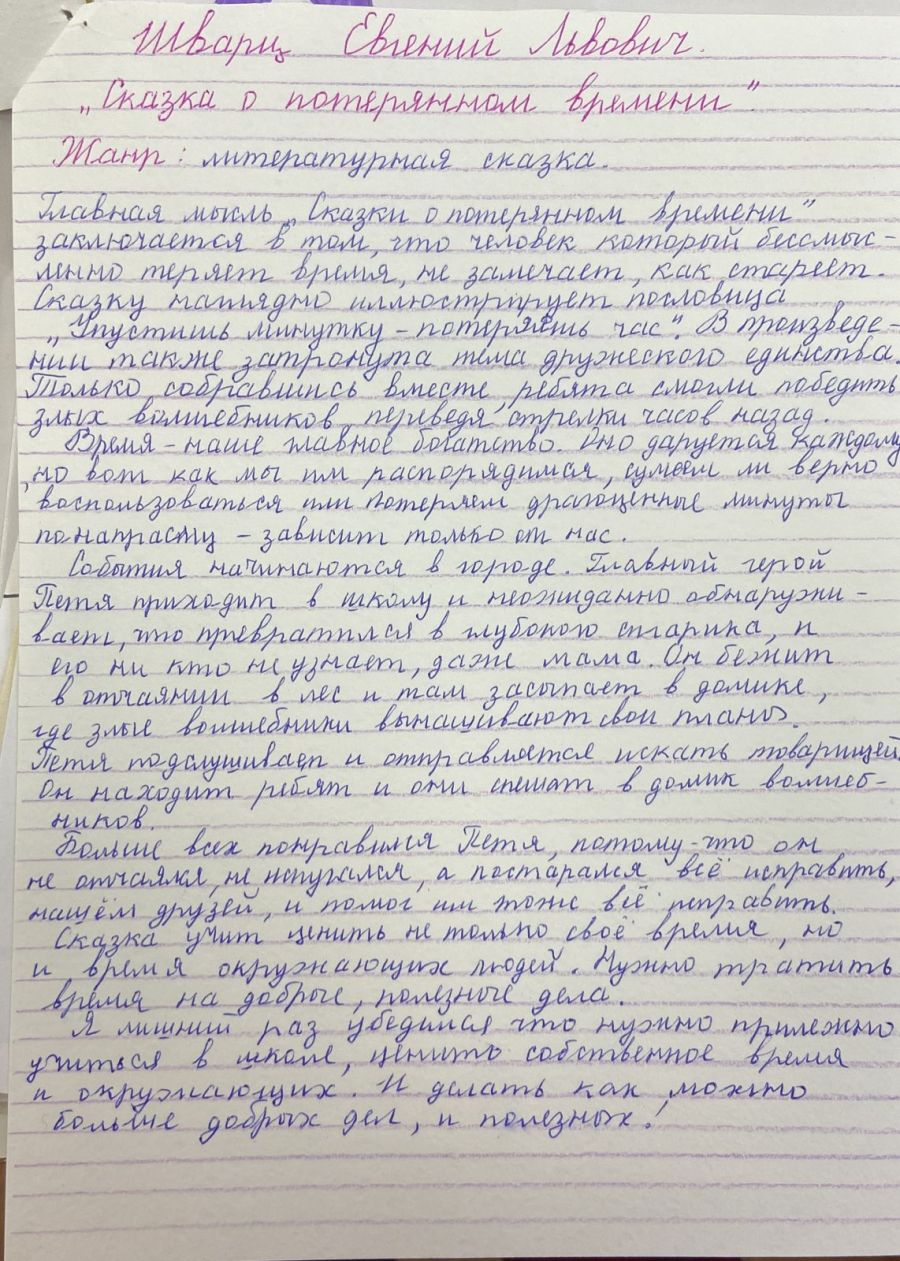 Шварц Евгений Львович.
„Сказка о потерянном времени"
Жанр: литературная сказка.
Главная мысль „Сказки о потерянном времени"
заключается в том, что человек который бессмыс-
ленно теряет время, не замечает, как стареет.
Сказку наглядно иллюстрирует пословица
„Упустишь минутку - потеряешь час". В произведе-
нии также затронута тема дружеского единства.
Только собравшись вместе, ребята смогли победить
злых волшебников, переведя стрелки часов назад.
Время - наше главное богатство. Оно даруется каждому
, но вот как мы им распорядимся, сумеем ли верно
воспользоваться или потеряем драгоценные минуты
понапрасну - зависит только от нас.
События начинаются в городе. Главный герой
Петя приходит в школу и неожиданно обнаружи-
вает, что превратился в глубокого старика, и
его ни кто не узнает, даже мама. Он бежит
в отчаянии в лес и там засыпает в домике,
где злые волшебники вынашивают свои планы.
Петя подслушивает и отправляется искать товарищей.
Он находит ребят и они спешат в домик волшеб-
ников.
Больше всех понравился Петя, потому-что он
не отчаялся, не испугался, а постарался всё исправить,
нашёл друзей, и помог им тоже всё исправить.
Сказка учит ценить не только своё время, но
и время окружающих людей. Нужно тратить
время на добрые, полезные дела.
Я лишний раз убедился что нужно прилежно
учиться в школе, ценить собственное время
и окружающих. И делать как можно
больше добрых дел, и полезных!